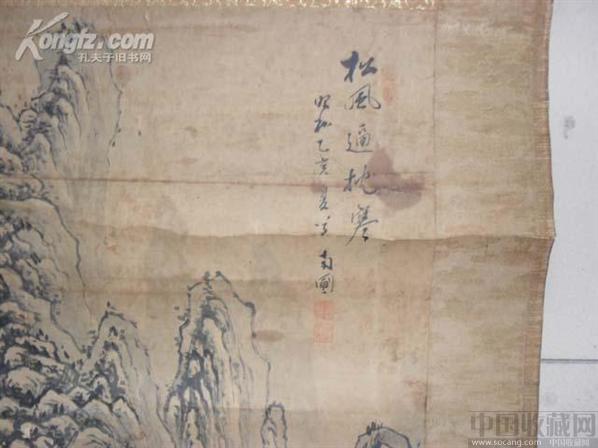 Kongfz.com
孔夫子旧书网
松風逼枕寒
昭和乙亥夏写 南圃
中国收藏网
www.socang.com